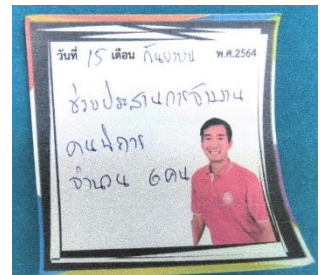 วันที่ 15 เดือน กันยายน พ.ศ.2564
ช่วยประสานการจ้างงาน
คนพิการ
จำนวน 6 คน